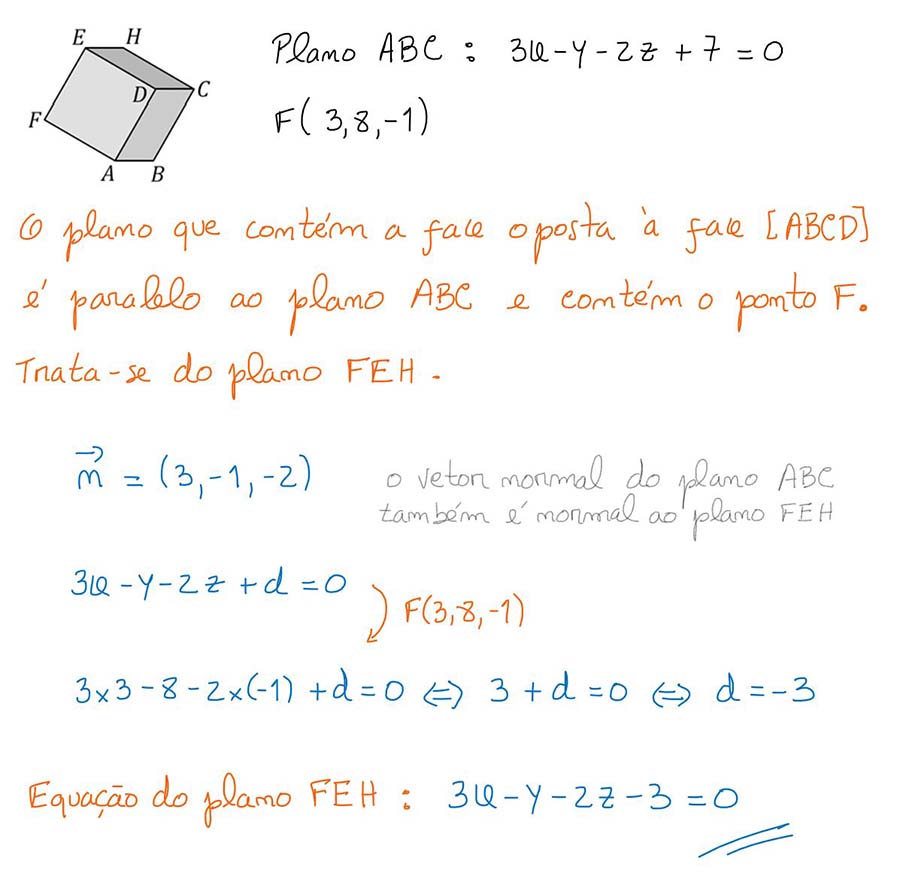 E H
D C
F
A B
Plano ABC : 3x - y - 2z + 7 = 0
F( 3, 8, -1)
O plano que contém a face oposta à face [ABCD]
é paralelo ao plano ABC e contém o ponto F.
Trata-se do plano FEH.
n⃗ = (3, -1, -2)
o vetor normal do plano ABC
também é normal ao plano FEH
3x - y - 2z + d = 0
F(3, 8, -1)
3×3 - 8 - 2×(-1) + d = 0 ⇔ 3 + d = 0 ⇔ d = -3
Equação do plano FEH : 3x - y - 2z - 3 = 0